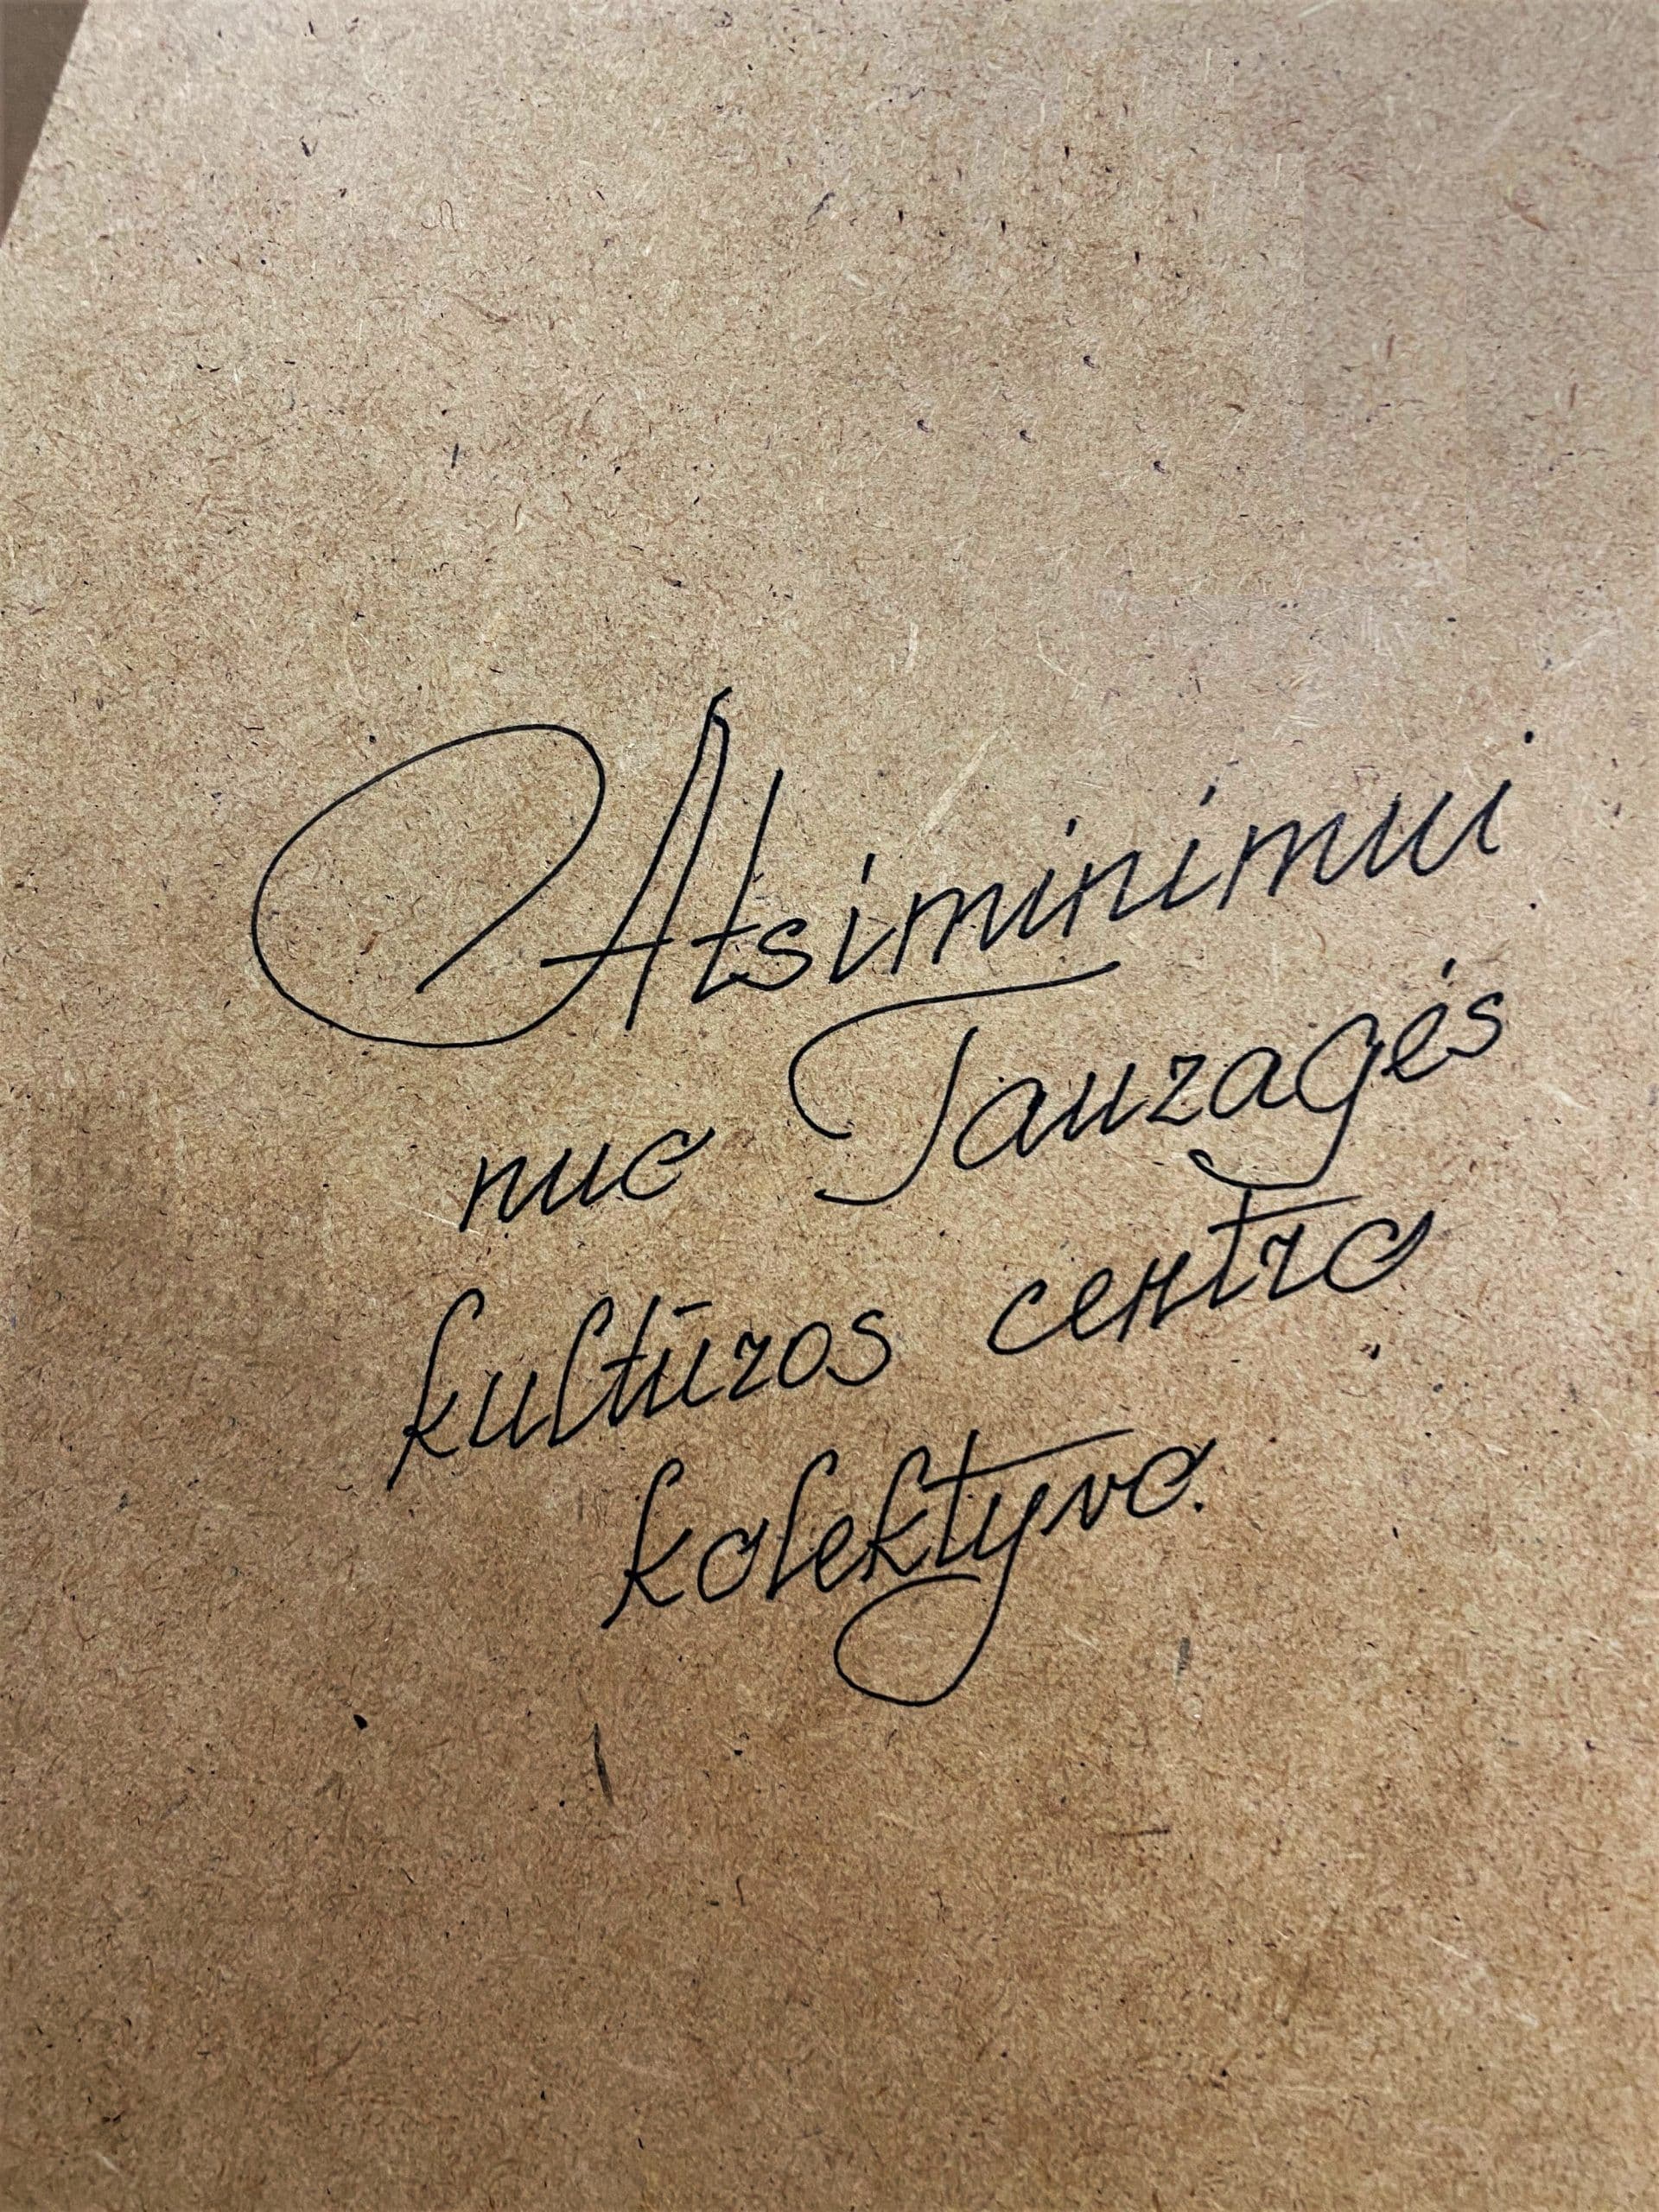 Atsiminimui
nuo Tauragės
kultūros centro
kolektyvo.